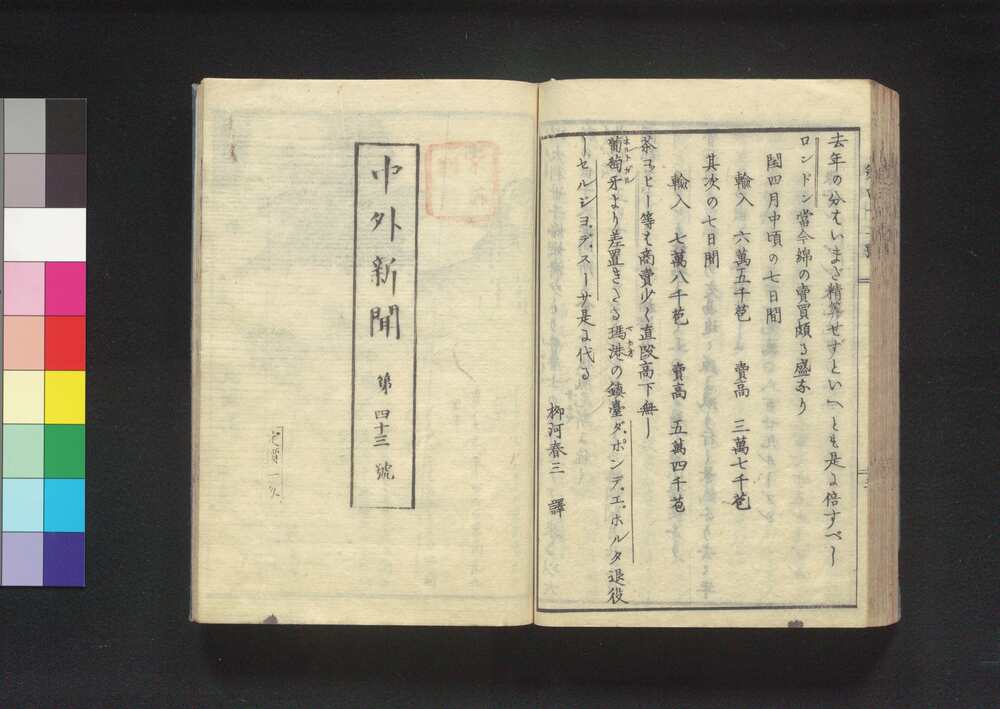 去年の分もいまだ精算せずといへとも是に倍すべし
ロンドン當今綿の賣買頗る盛なり
閏四月中頃の七日間
輸入 六萬五千苞 賣高 三萬七千苞
其次の七日間
輸入 七萬八千苞 賣高 五萬四千苞
茶コヒー等も商賣少く直段高下無し
葡萄牙より差置きたる瑪港の鎮臺ダ、ポンデ、エ、ホルタ退役
しセルジヨ、デ、スーサ是に代る
柳河春三 譯
中外新聞 第四十三號
定價一匁